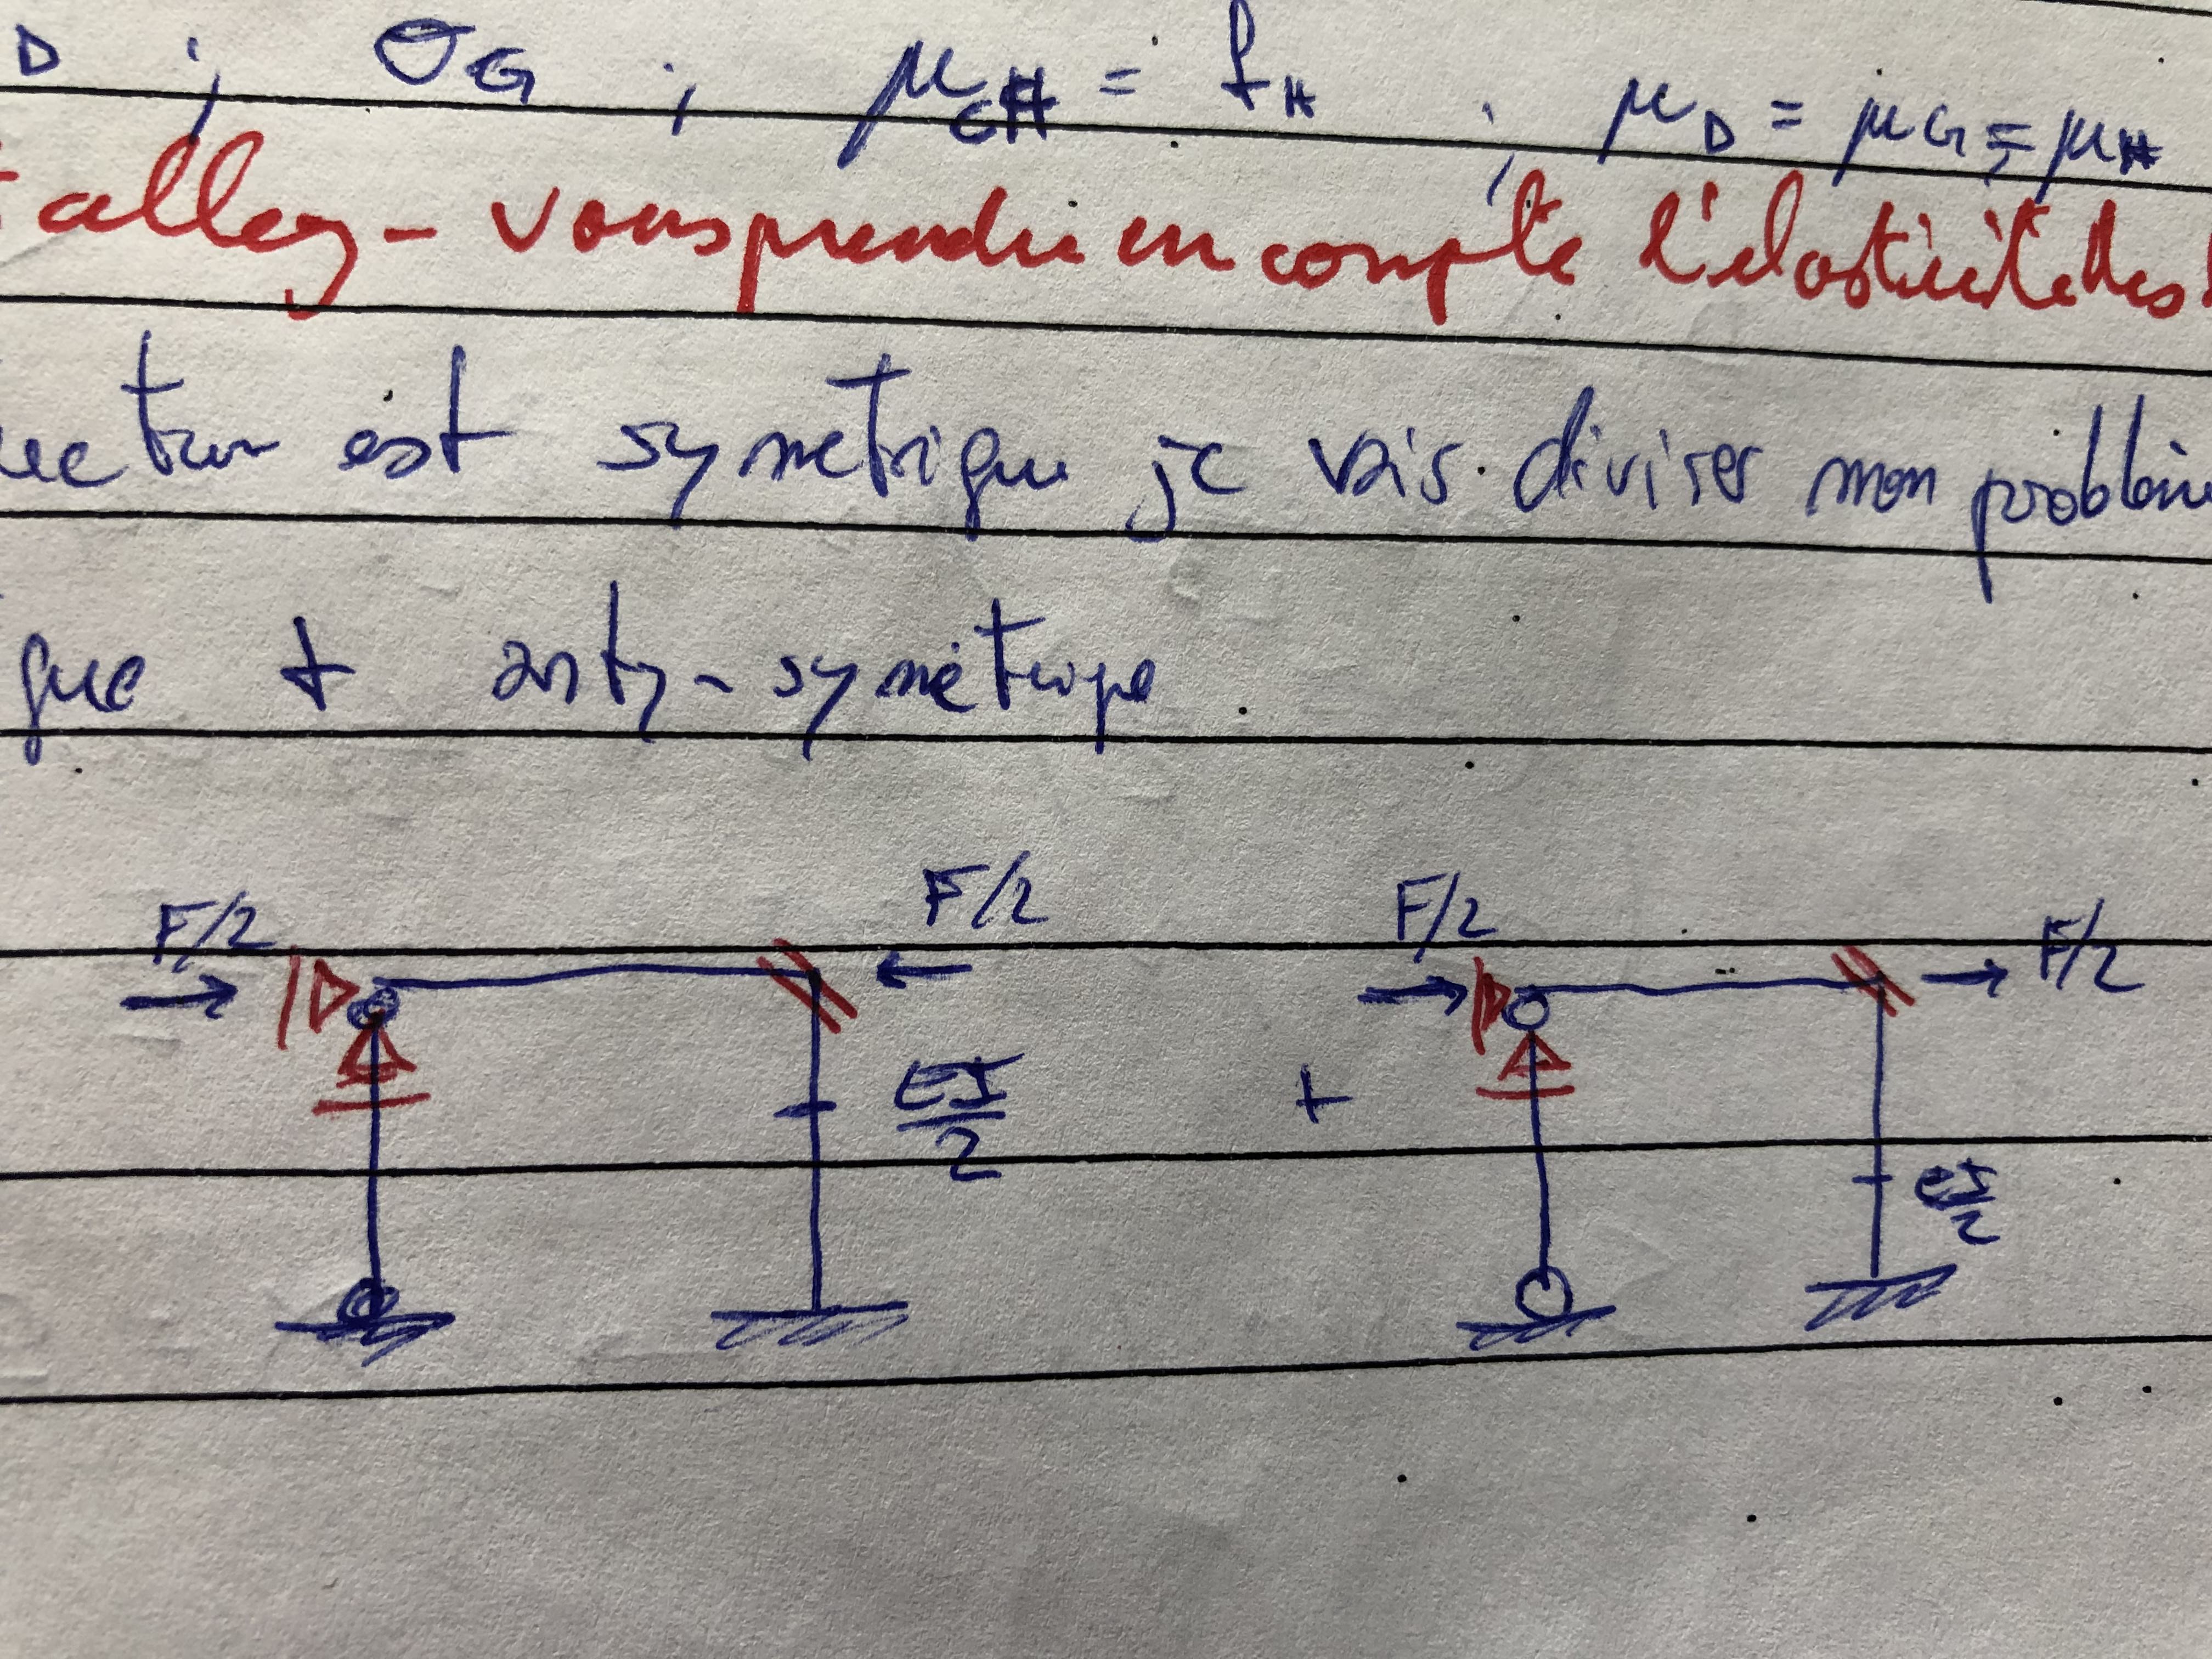 D ; θG ; μCH = fH ; μD = μG = μH
alley - vous prendre en compte l'élasticité des
est symétrique je vais diviser mon problèm
que + anty-symétrique
F/2 F/2 F/2 F/2
EI/2 + EI/2